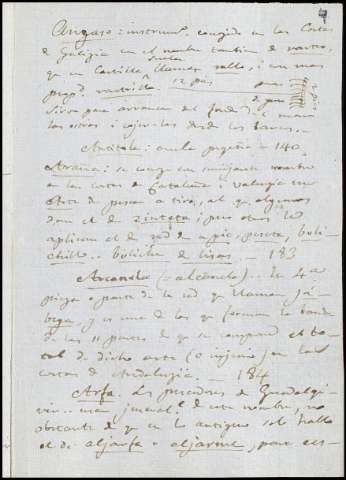 Angaso: instrumto. conocido en las Costas
de Galizia con el nombre tambien de
que en Castilla suelen llaman rallo, i con mas
propd. rastrillo. 12 pies
Sirve para arrancar del fondo del mar
las ostras i cojerlas desde los barcos.
Anzitele: ancla pequeña — 140
Atraina: se conoce con semejante nombre
en las costas de Cataluña i Valencia un
Arte de pescar a tiro, al qe. algunos
dan el de xinteta; pero otros le
aplican el de red de a pie, peseta, boli-
chillo.. boliche de lisas. — 183
Arcanela (= alcanela).. la 4a
pieza o parte de la red qe llaman já-
bega, y es una de las qe forman la banda
de las 11 partes de qe se compond el to-
tal de dicho arte (o injenio) en las
costas de Andalucia. — 184
Arfa. Los pescadores de Guadalqi-
vir.. usan jeneralmte. de este nombre, no
obstante de qe en lo antiguo se halla
el de aljarfa o aljarme, pero es-